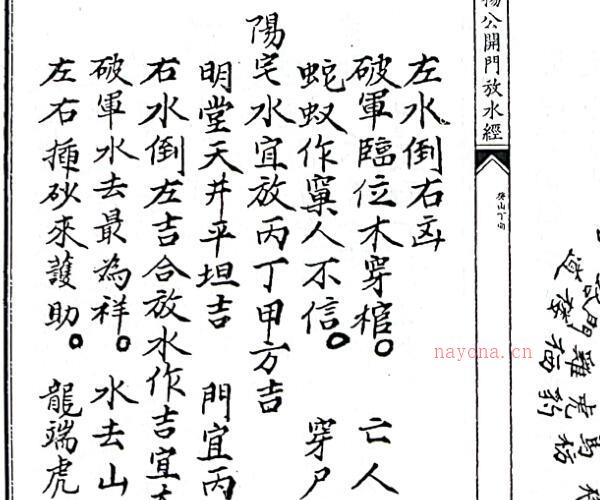 楊公開門放水經
癸山丁向
左水倒右凶
破軍臨位木穿棺。 亡人
蛇蚁作窠人不信。 穿尸
陽宅水宜放丙丁甲方吉
明堂天井平坦吉 門宜丙
右水倒左吉合放水作吉宜
破軍水去最為祥。 水去山
左右揷砂來護助。 龍端虎
nayona.cn